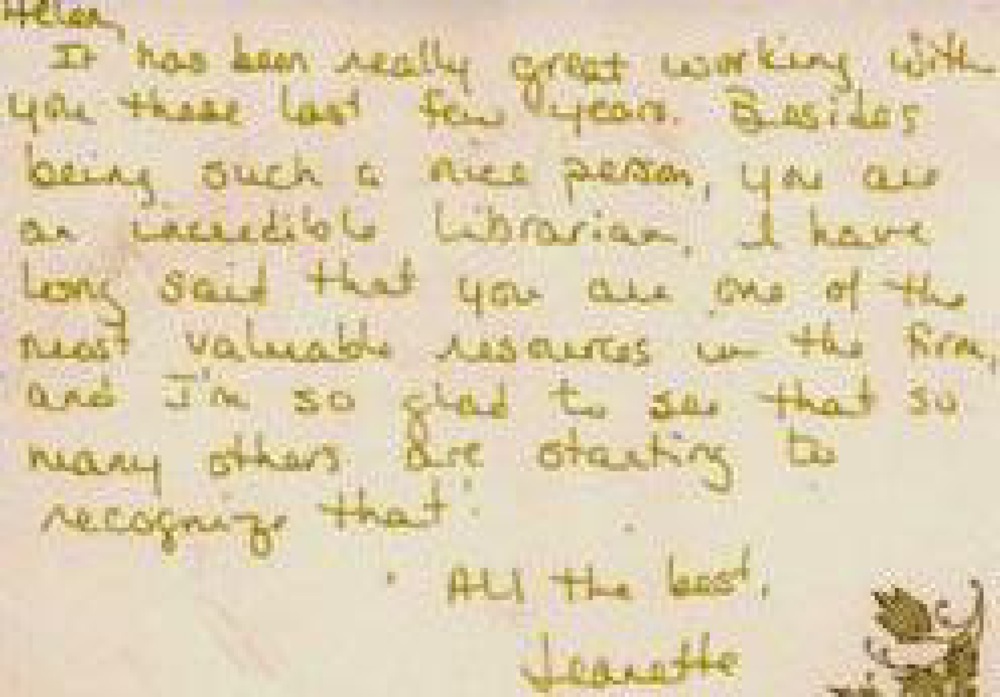 Helen,
It has been really great working with
you these last few years. Besides
being such a nice person, you are
an incredible librarian. I have
long said that you are one of the
most valuable resources in the firm,
and I'm so glad to see that so
many others are starting to
recognize that!
All the best,
Jeanette